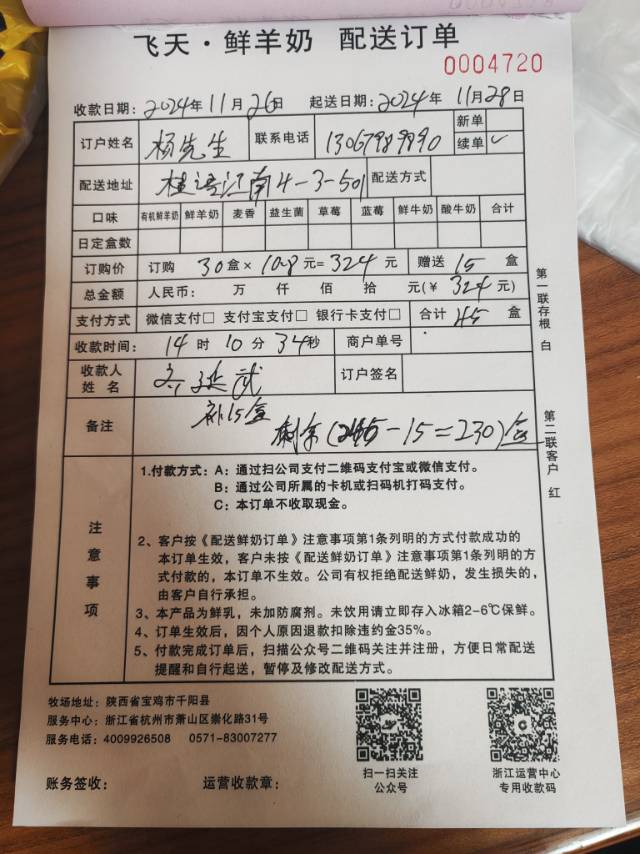 飞天·鲜羊奶 配送订单
0004720
收款日期：2024年11月26日 起送日期：2024年11月28日
订户姓名 杨先生 联系电话 13067989890 新单
续单 ✓
配送地址 桂语江南4-3-501 配送方式
口味 有机鲜羊奶 鲜羊奶 麦香 益生菌 草莓 蓝莓 鲜牛奶 酸牛奶 合计
日定盒数
订购价 订购 30盒×10.8元=324元 赠送 15 盒
总金额 人民币： 万 仟 佰 拾 元(￥324元)
支付方式 微信支付□ 支付宝支付□ 银行卡支付□ 合计 45 盒
收款时间： 14时10分34秒 商户单号
收款人
姓 名 订户签名
备注 补15盒
剩余(245-15=230)盒
第一联存根 白
第二联客户 红
注意事项
1.付款方式：A：通过扫公司支付二维码支付宝或微信支付。
B：通过公司所属的卡机或扫码机打码支付。
C：本订单不收取现金。
2、客户按《配送鲜奶订单》注意事项第1条列明的方式付款成功的
本订单生效，客户未按《配送鲜奶订单》注意事项第1条列明的方
式付款的，本订单不生效。公司有权拒绝配送鲜奶，发生损失的，
由客户自行承担。
3、本产品为鲜乳，未加防腐剂。未饮用请立即存入冰箱2-6℃保鲜。
4、订单生效后，因个人原因退款扣除违约金35%。
5、付款完成订单后，扫描公众号二维码关注并注册，方便日常配送
提醒和自行起送，暂停及修改配送方式。
牧场地址：陕西省宝鸡市千阳县
服务中心：浙江省杭州市萧山区崇化路31号
服务电话：4009926508 0571-83007277
扫一扫关注
公众号
浙江运营中心
专用收款码
账务签收： 运营收款章：